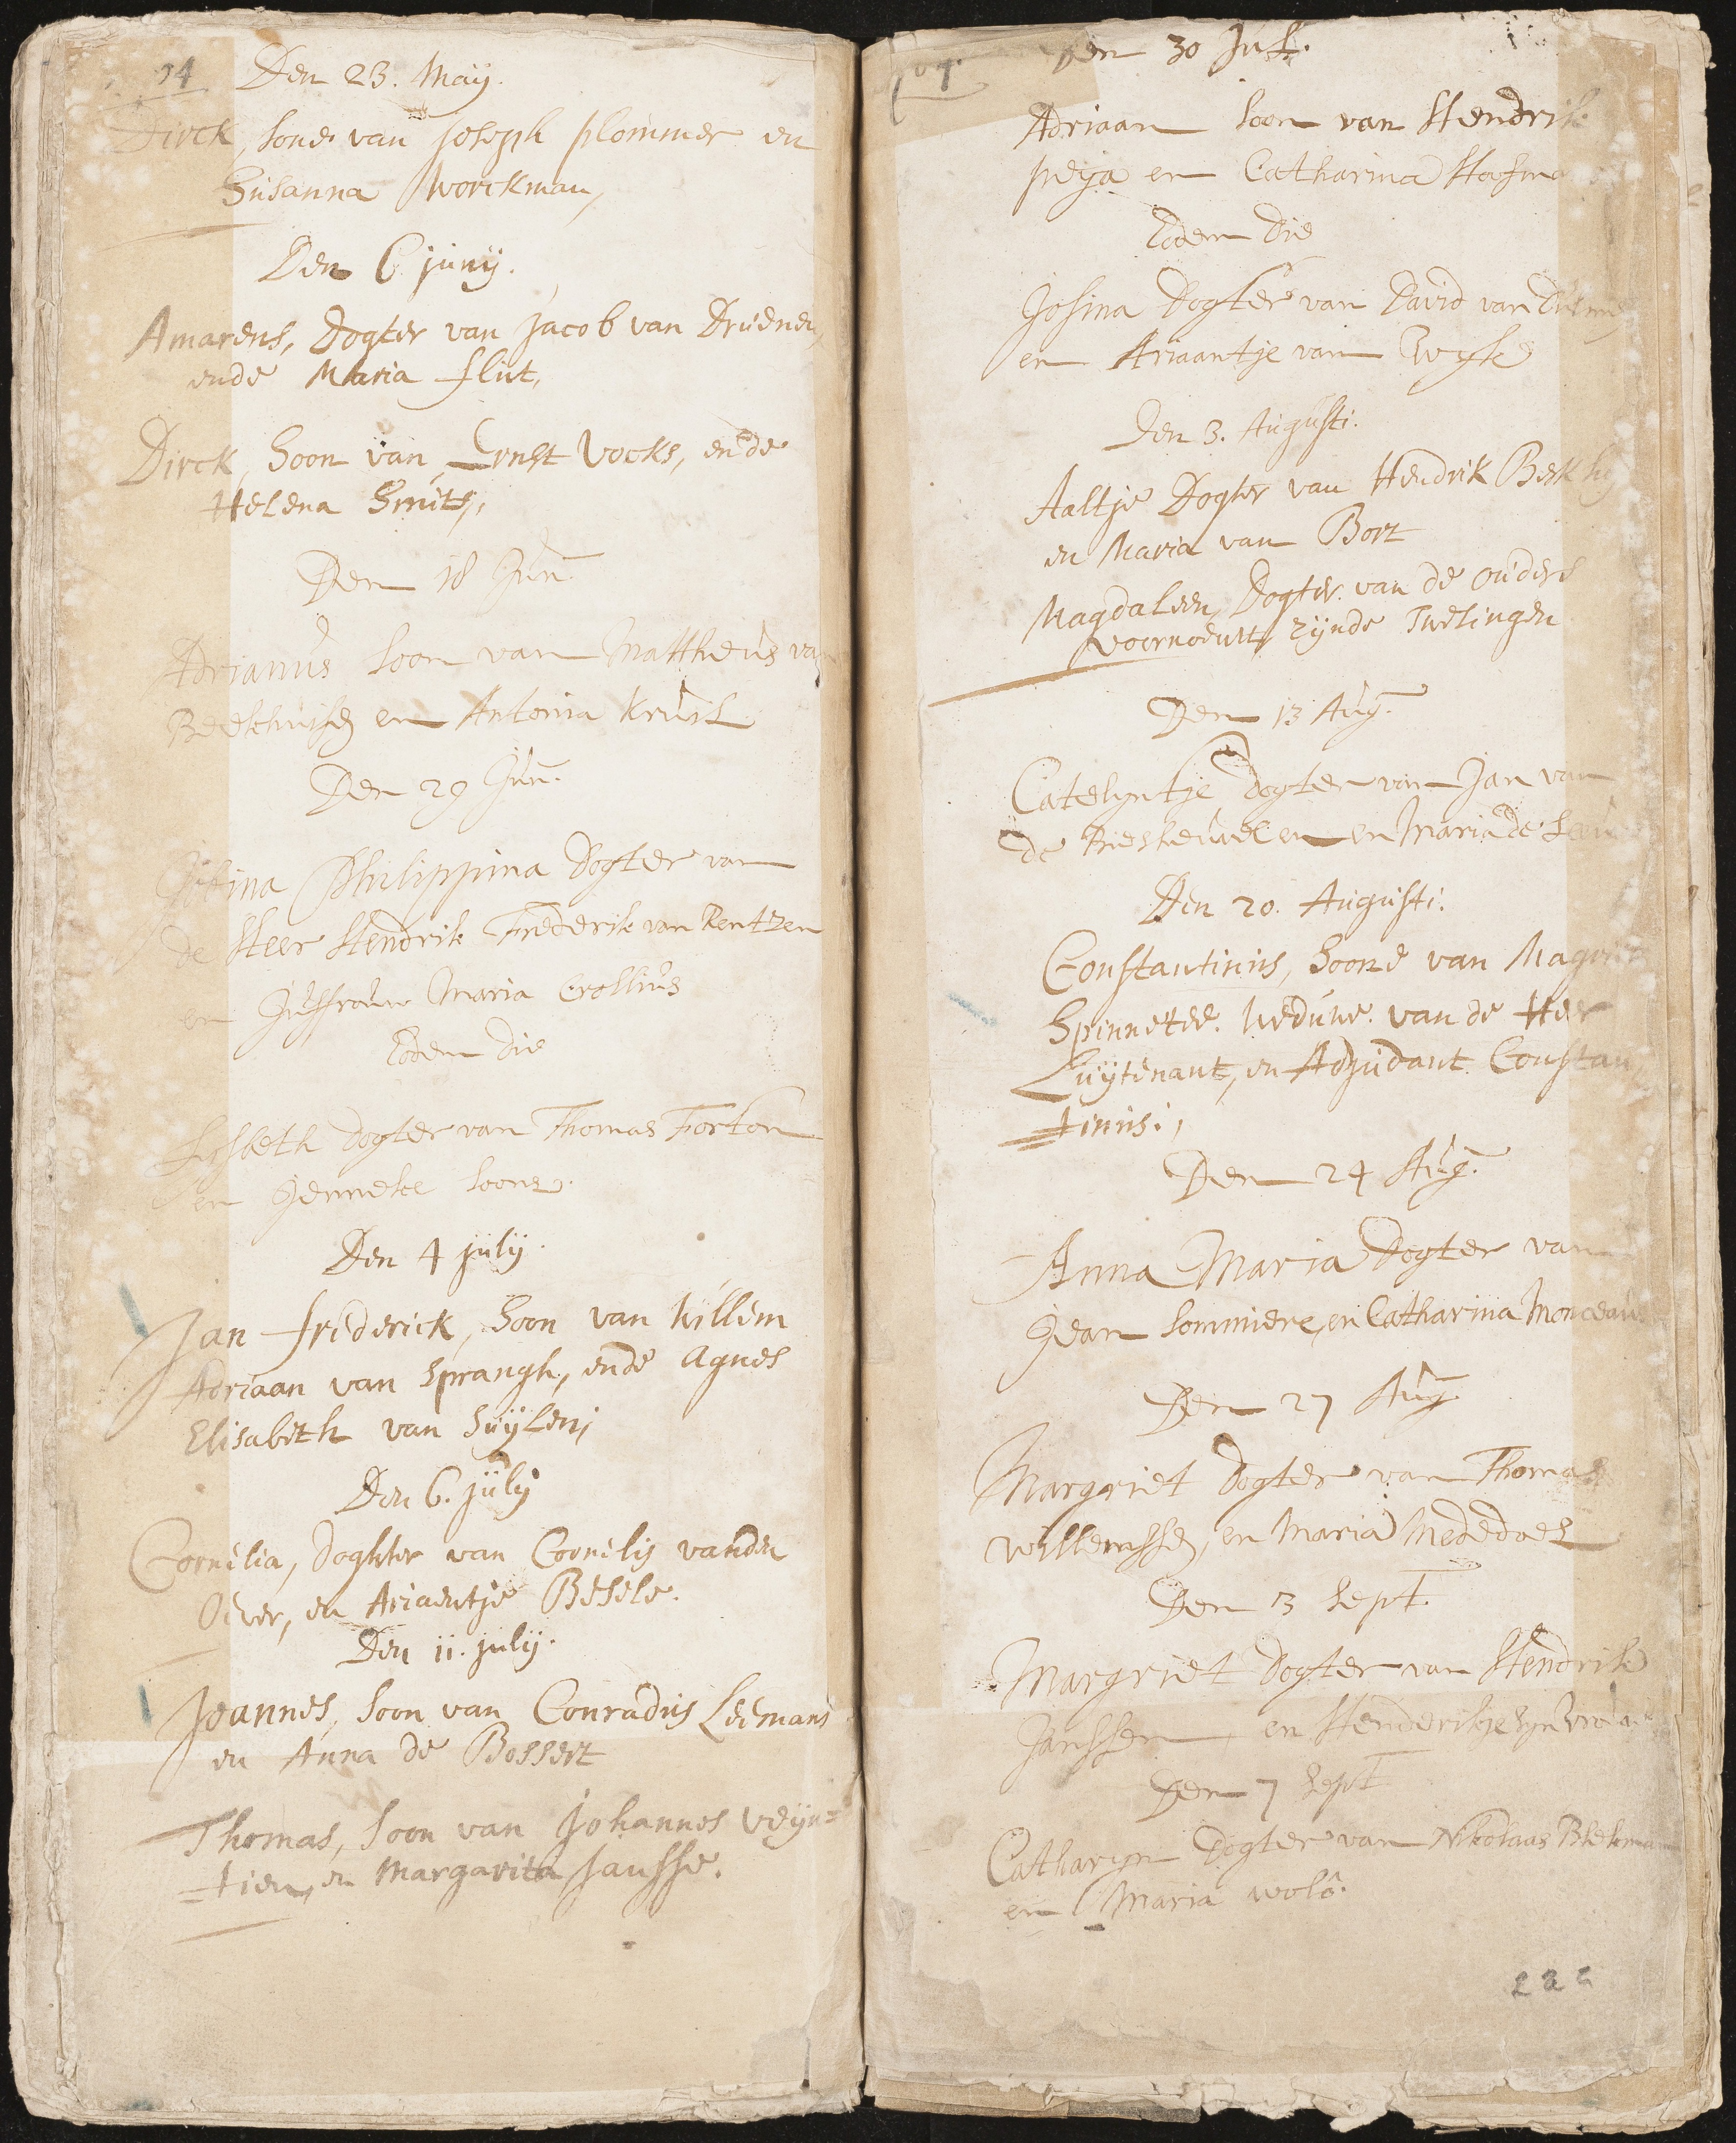 94 Den 23. May.
Dirck, sone van joseph plommer en
Susanna Workman,
Den 6 junij.
Amarens, Dogter van jacob van Drúenen,
ende Maria flút,
Dirck, Soon van Ernst Vocks, ende
Helena Smits,
Den 18 Jun
Adrianús soon van Mattheús van
Beekhuijsen en Antonia Kruil
Den 29 Jun.
Josina Philippina Dogter van
de Heer Hendrik Frederik van Rentzen
en Juffrouw Maria Crollius
Eodem die
Lijsbeth dogter van Thomas Forton
en Jenneke soons.
Den 4 julij.
Jan frederick, Soon van Willem
Adriaan van Sprangh, ende Agnes
Elisabeth van Suijlen,
Den 6. julij
Cornelia, Doghter van Cornelis vanden
Oever, en Ariaentje Besele.
Den 11. julij.
Joannes, Soon van Conradus Leemans
en Anna de Bossert
Thomas, Soon van Johannes Veijn=
=tien, en Margarita Jansse.
Den 30 Jul.
Adriaan soon van Hendrik
peja en Catharina
Eodem Die
Josina Dogter van David van
en Ariaantje van Ewyk
Den 3. Augusti.
Aaltje Dogter van Hendrik
en Maria van Bort
Magdaleen, Dogter van de ouders
voornoemt, zijnde Twelingen
Den 13 Aug.
Catelyntje dogter van Jan van
de Riesheuvel en en Maria de
Den 20. Augusti.
Constantinus, Soone van
Spinnekee. Weduwe. van de Heer
Luijtenant, en Adjudant Constan
=tinus.,
Den 24 Aug.
Anna Maria Dogter van
Jean Sommiere, en Catharina Monceau
Den 27 Aug.
Margriet dogter van Thomas
Willemssen, en Maria Mededoel
Den 3 Sept.
Margriet Dogter van Hendrik
Janssen, en Henderikje
Den 7 Sept
Catharyn Dogter van Nikolaas Blekman
en Maria